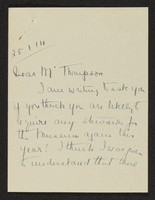 25.1.111
Dear Mr Thompson
I am writing to ask you
if you think you are likely to
require any skiagrams for
the Museum again this
year? I think I was given
to understand that there